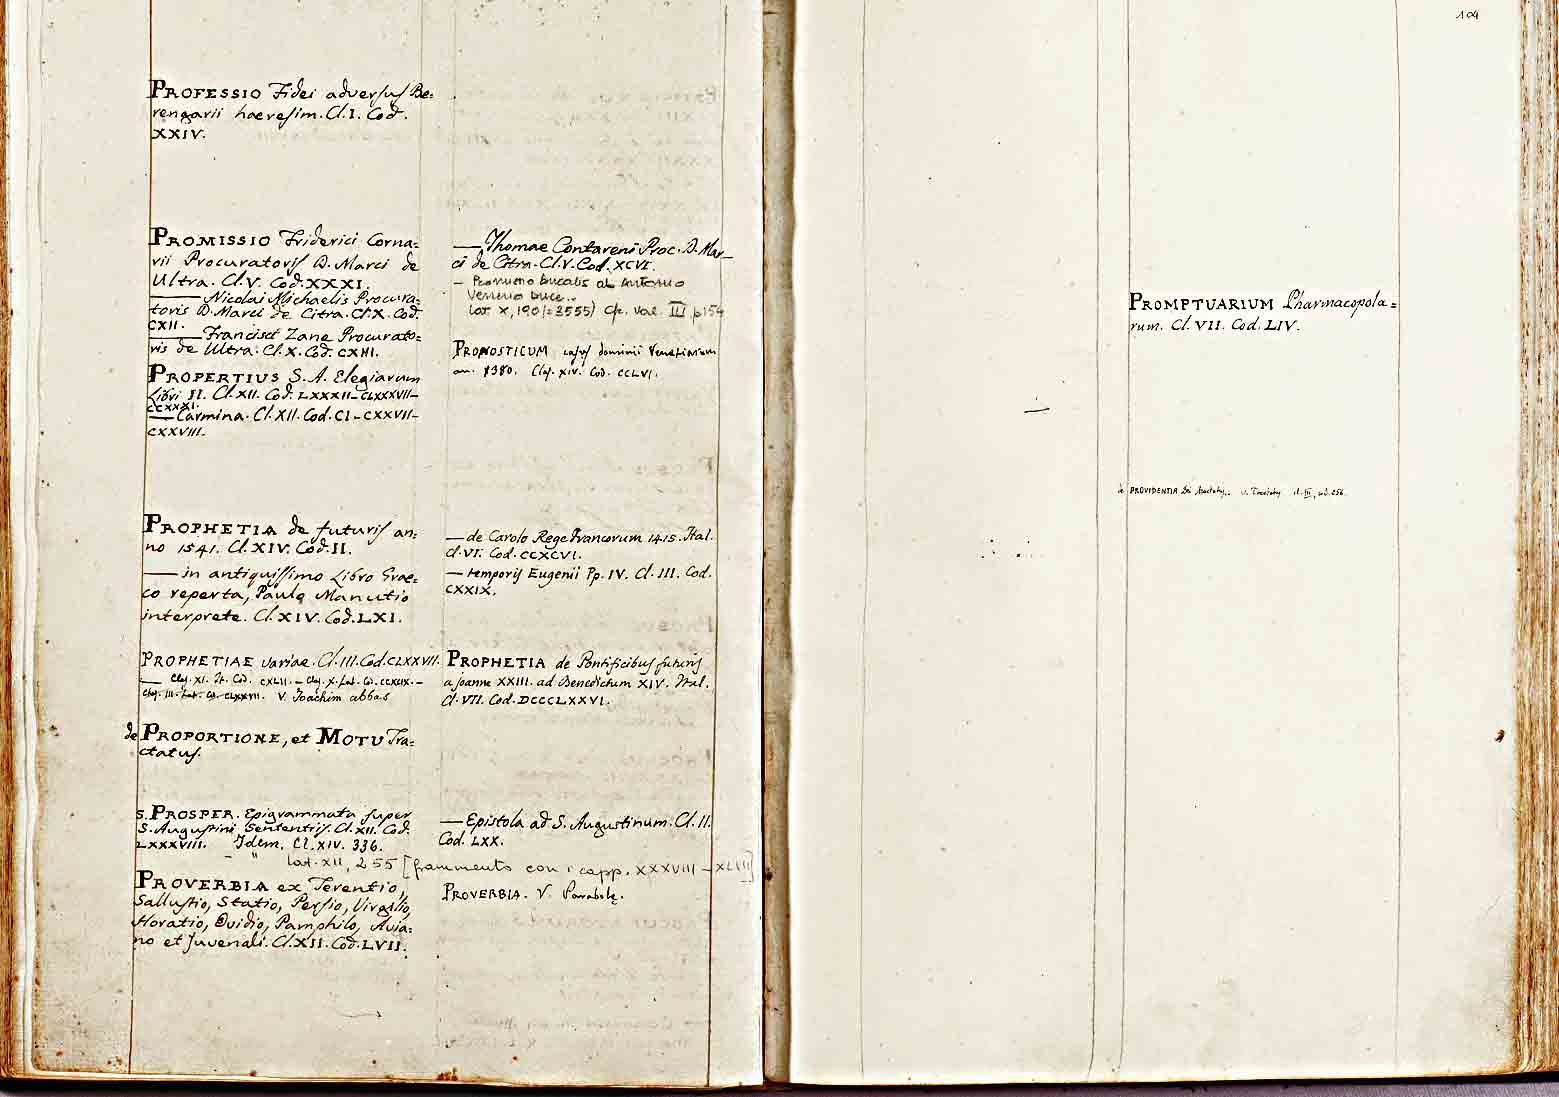 PROFESSIO Fidei adversus Be=
rengarii haeresim. Cl. I. Cod.
XXIV.
PROMISSIO Friderici Corna=
rii Procuratoris D. Marci de
Ultra. Cl. V. Cod. XXXI.
— Nicolai Michaelis Procura=
toris D. Marci de Citra. Cl. X. Cod.
CXII.
— Francisci Zane Procurato=
ris de Ultra. Cl. X. Cod. CXIII.
PROPERTIUS S. A. Elegiarum
Libri II. Cl. XII. Cod. LXXXII - CLXXXVII -
CCXXXI.
— Carmina. Cl. XII. Cod. CI - CXXVII -
CXXVIII.
PROPHETIA de futuris an=
no 1541. Cl. XIV. Cod. II.
— in antiquissimo Libro Grae=
co reperta, Paulo Manutio
interprete. Cl. XIV. Cod. LXI.
PROPHETIAE variae. Cl. III. Cod. CLXXVII.
— Clas. XI. It. Cod. CXLII. - Clas. X. Lat. Cod. CCXCIX. -
Clas. III. Lat. Cod. CLXXVII. V. Joachim abbas
de PROPORTIONE, et MOTU Tra=
ctatus.
S. PROSPER. Epigrammata super
S. Augustini Sententiis. Cl. XII. Cod.
LXXXVIII. Idem. Cl. XIV. 336.
- " Lat. XII, 255 [frammento con i capp. XXXVIII - XLVII]
PROVERBIA ex Terentio,
Sallustio, Statio, Persio, Virgilio,
Horatio, Ovidio, Pamphilo, Avia=
no et Juvenali. Cl. XII. Cod. LVII.
— Thomae Contareni Proc. D. Mar_
ci de Citra. Cl. V. Cod. XCVI.
— ducalis ab Antonio
Venerio duce..
Lat. X, 190 (=3555) Cfr. Val. III, p 154
PRONOSTICUM casus dominii Venetiarum
an. 1380. Clas. XIV. Cod. CCLVI.
— de Carolo Rege Francorum 1415. Ital.
Cl. VI. Cod. CCXCVI.
— temporis Eugenii Pp. IV. Cl. III. Cod.
CXXIX.
PROPHETIA de Pontificibus futuris
a Joanne XXIII. ad Benedictum XIV. Ital.
Cl. VII. Cod. DCCCLXXVI.
— Epistola ad S. Augustinum. Cl. II.
Cod. LXX.
PROVERBIA. V. Parabolę.
104
PROMPTUARIUM Pharmacopola=
rum. Cl. VII. Cod. LIV.
de PROVIDENTIA Dei v. cl. III, cod. 256.